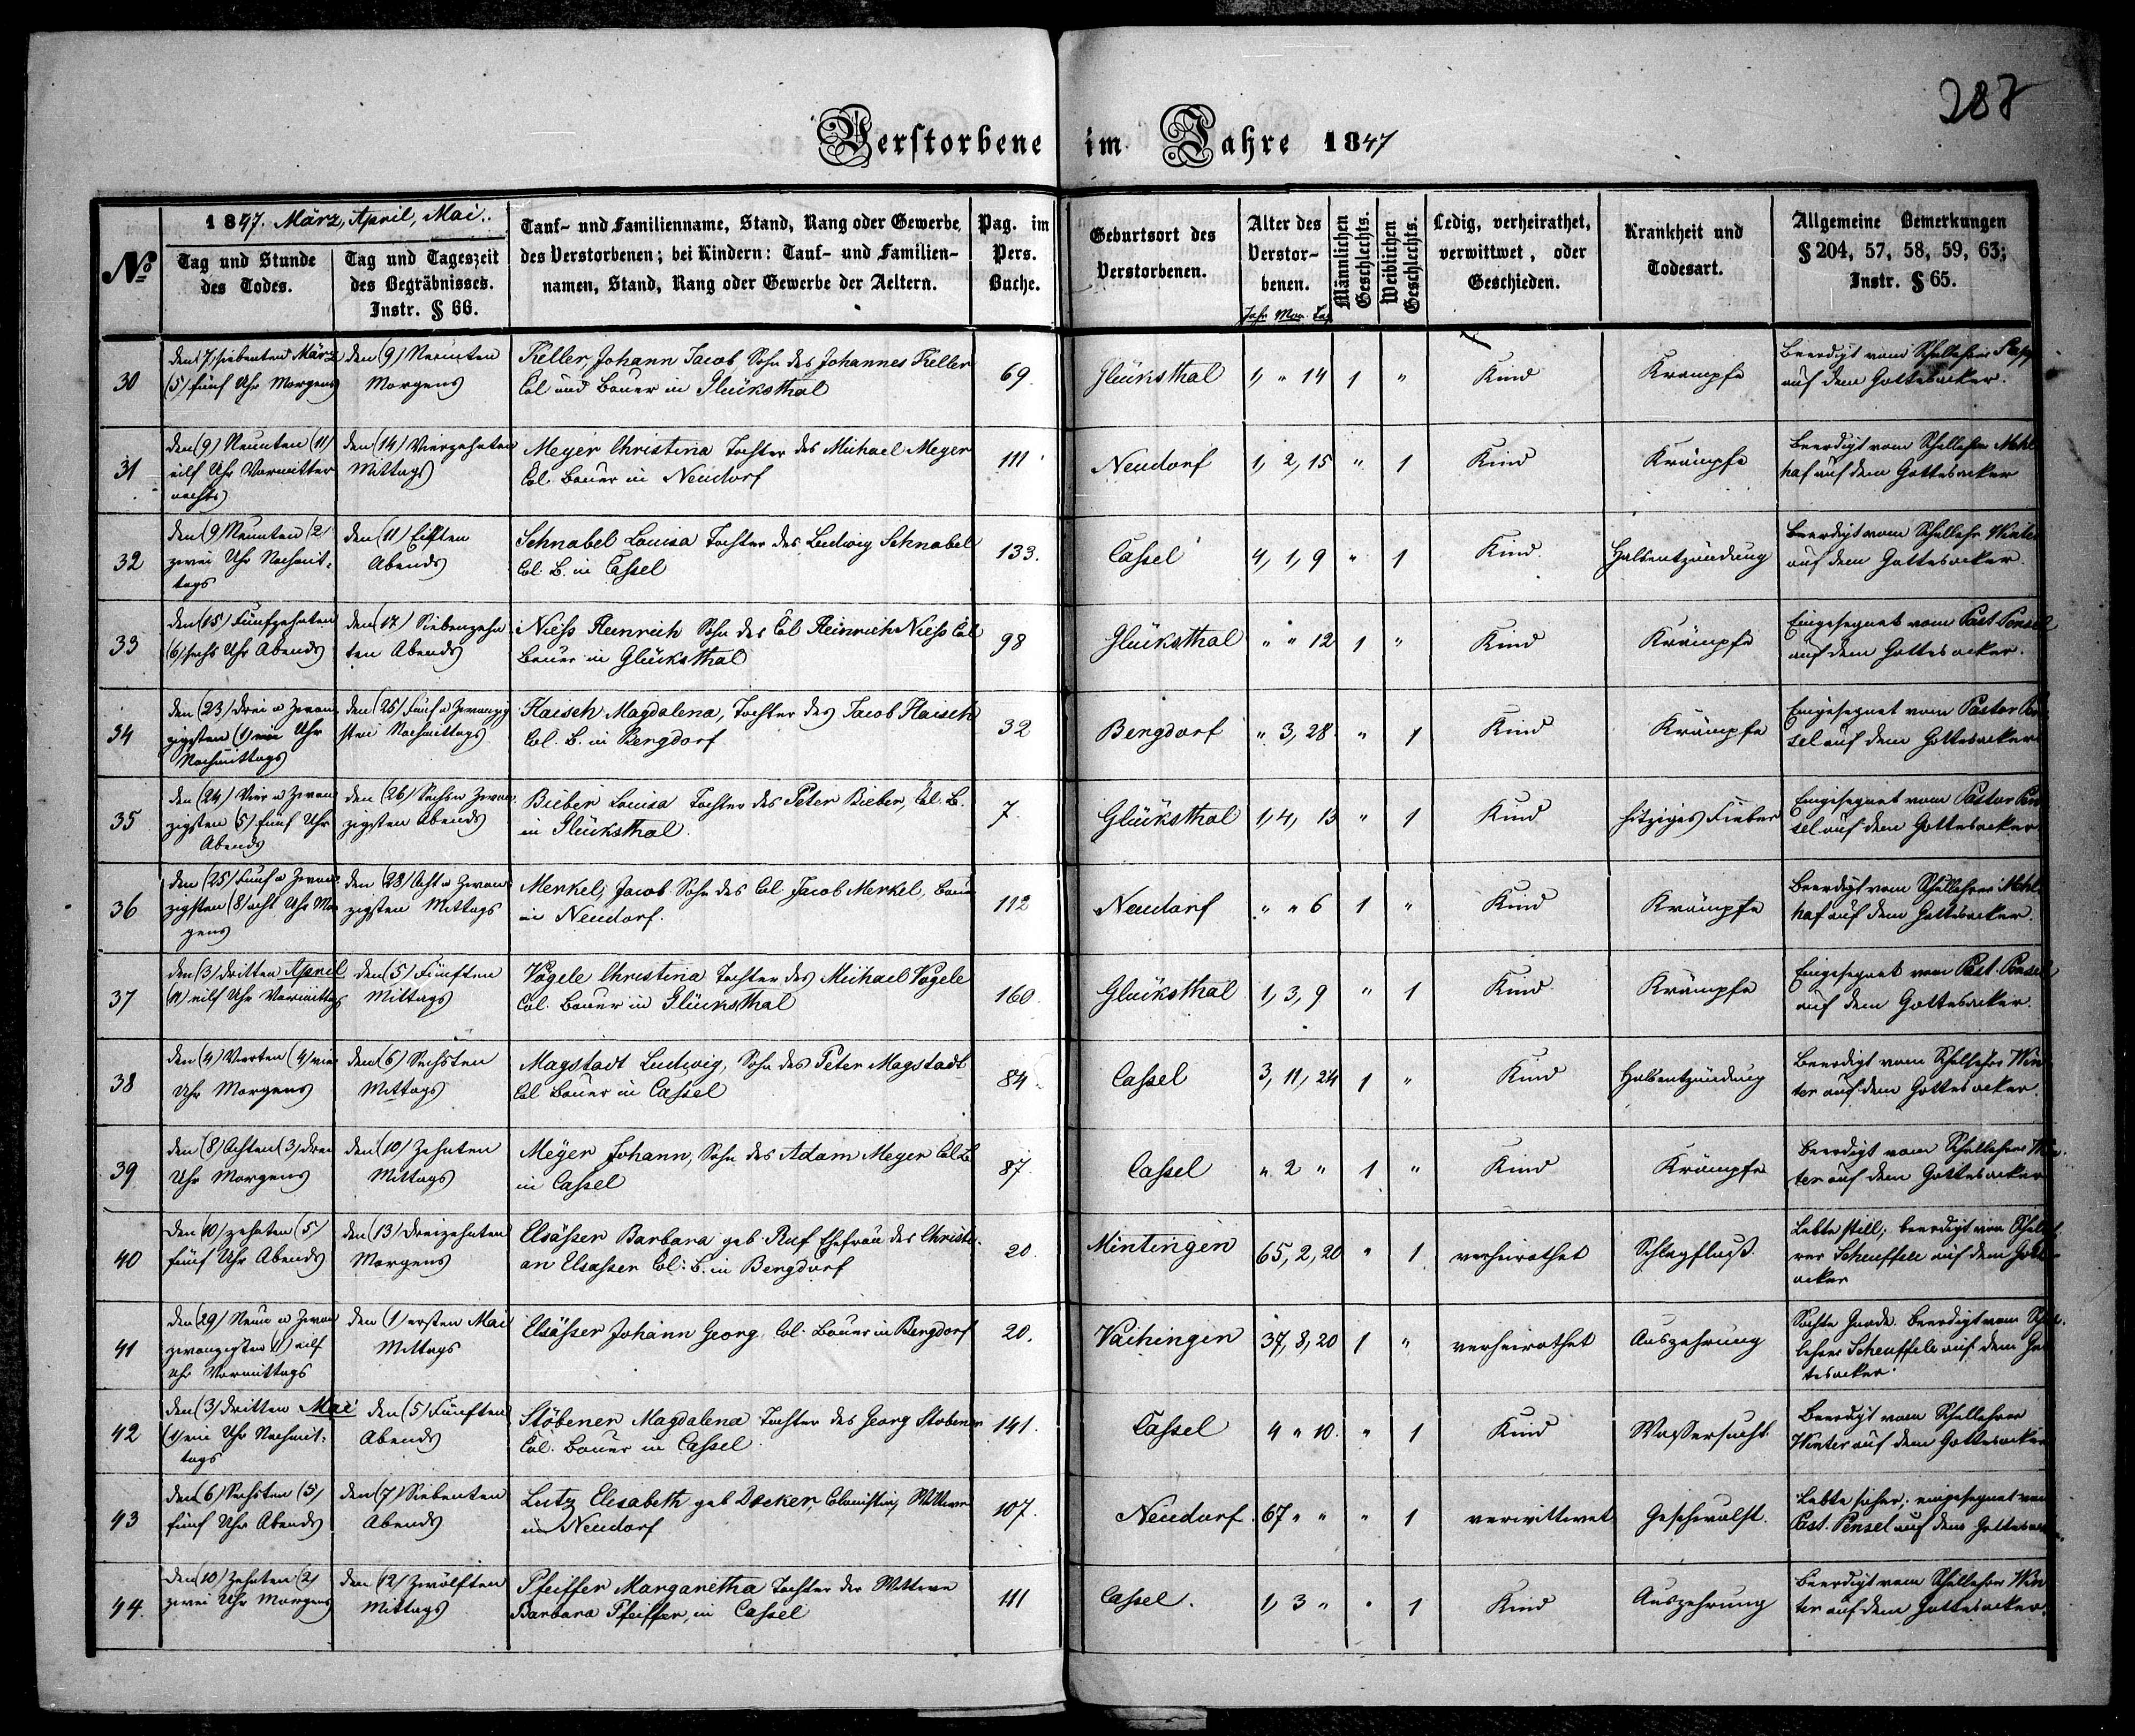 287
Verstorbene im Jahre 1847
1847. März, April, Mai.
No
Tag und Stunde
des Todes.
Tag und Tageszeit
des Begräbnisses.
Instr. § 66.
Tauf- und Familienname, Stand, Rang oder Gewerbe
des Verstorbenen; bei Kindern: Tauf- und Familien-
namen, Stand, Rang oder Gewerbe der Aeltern.
Pag. im
Pers.
Buche.
Geburtsort des
Verstorbenen.
Alter des
Verstor-
benen.
Jahr Mon. Tag
Männlichen
Geschlechts.
Weiblichen
Geschlechts.
Ledig, verheirathet,
verwittwet, oder
Geschieden.
Krankheit und
Todesart.
Allgemeine Bemerkungen
§ 204, 57, 58, 59, 63;
Instr. § 65.
30
den (7) siebenten März
(5) fünf Uhr Morgens
den (9) Neunten
Morgens
Keller, Johann Jacob, Sohn des Johannes Keller
Col und Bauer in Glücksthal
69.
Glücksthal
1, " 14
1
"
Kind
Krämpfe
Beerdigt vom Schullehrer
auf dem Gottesacker.
31
den (9) Neunten (11)
eilf Uhr Vormitter
nachts
den (14) Vierzehnten
Mittags
Meyer Christina Tochter des Michael Meyer
Col. Bauer in Neudorf
111
Neudorf
1, 2, 15
"
1
Kind
Krämpfe
Beerdigt vom Schullehrer Mehl
haf auf dem Gottesacker
32
den (9) Neunten (2)
zwei Uhr Nachmit-
tags
den (11) Eilften
Abends
Schnabel Louisa Tochter des Ludwig Schnabel
Col. B. in Cassel
133.
Cassel
4, 1, 9
"
1
Kind
Halsentzündung
Beerdigt vom Schullehr Winter
auf dem Gottesacker.
33
den (15) Fünfzehnten
(6) sechs Uhr Abends
den (17) Siebenzehn
ten Abends
Niess Heinrich Sohn des Col Heinrich Niess Col
Bauer in Glücksthal
98
Glücksthal
" " 12
1
"
Kind
Krämpfe
Eingesegnet vom Past Pensel
auf dem Gottesacker.
34
den (23) drei u Zwan
zigsten (1) ein Uhr
Nachmittags
den (25) Fünf u Zwanzig
sten Nachmittags
Haisch Magdalena, Tochter des Jacob Haisch
Col. B. in Bergdorf
32
Bergdorf
" 3, 28
"
1
Kind
Krämpfe
Eingesegnet vom Pastor Pen
sel auf dem Gottesacker
35
den (24) Vier u Zwan
zigsten (5) fünf Uhr
Abends
den (26) Sechs u Zwan
zigsten Abends
Bieber Louisa Tochter des Peter Bieber, Col. B.
in Glücksthal.
7.
Glücksthal
1, 4, 13
"
1
Kind
hitziges Fieber
Eingesegnet vom Pastor Pen
sel auf dem Gottesacker
36
den (25) Fünf u Zwan
zigsten (8) acht Uhr Mor
gens
den (28) Acht u Zwan
zigsten Mittags
Merkel, Jacob Sohn des Col Jacob Merkel, Bauer
in Neudorf.
112
Neudorf
" " 6
1
"
Kind
Krämpfe
Beerdigt vom Schullehrer Mehl
haf auf dem Gottesacker.
37
den (3) dritten April
(11) eilf Uhr Vormittags
den (5) Fünften
Mittags
Vögele Christina Tochter des Michael Vögele
Col. Bauer in Glücksthal
160.
Glücksthal
1, 3, 9
"
1
Kind
Krämpfe
Eingesegnet vom Past. Pensel
auf dem Gottesacker.
38
den (4) Vierten (4) vier
Uhr Morgens
den (6) Sechsten
Mittags
Magstadt Ludwig, Sohn des Peter Magstadt
Col Bauer in Cassel
84.
Cassel
3, 11, 24
1
"
Kind
Halsentzündung
Beerdigt vom Schullehrer Win
ter auf dem Gottesacker.
39
den (8) Achten (3) drei
Uhr Morgens
den (10) Zehnten
Mittags
Meyer Johann, Sohn des Adam Meyer Col. B.
in Cassel
87.
Cassel
" 2 "
1
"
Kind
Krämpfe
Beerdigt vom Schullehrer Win
ter auf dem Gottesacker
40
den (10) zehnten (5)
fünf Uhr Abends
den (13) Dreizehnten
Morgens
Elsässer Barbara geb. Ruf Ehefrau des Christi-
an Elsasser Col. B. in Bergdorf
20.
Mintingen
65, 2, 20
"
1
verheirathet
Schlagfluß
Lebte still; beerdigt von Schulleh
rer Scheuffele auf dem Gottes
acker
41
den (29) Neun u Zwan
zwanzigsten (11) eilf
Uhr Vormittags
den (1) ersten Mai
Mittags
Elsässer Johann Georg, Col. Bauer in Bergdorf
20.
Vaihingen
37, 8, 20
1
"
verheirathet
Auszehrung
Suchte Gnade. Beerdigt vom Schul-
lehrer Scheuffele auf dem Got
tesacker.
42
den (3) dritten Mai
(1) ein Uhr Nachmit-
tags
den (5) Fünften
Abends
Stöbener Magdalena Tochter des Georg Stobener
Col. Bauer in Cassel.
141.
Cassel
4 " 10.
"
1
Kind
Wassersucht
Beerdigt vom Schullehrer
Winter auf dem Gottesacker
43
den (6) Sechsten (5)
fünf Uhr Abends
den (7) Siebenten
Abends
Lutz Elisabeth geb Decker, Colonistin, Wittwe
in Neudorf
107.
Neudorf.
67 " "
"
1
verwittwet
Geschwulst.
Lebte sicher; eingesegnet von
Past. Pensel auf dem Gottesacker
44.
den (10) Zehnten (2)
zwei Uhr Morgens
den (12) Zwölften
Mittags
Pfeiffer Margaretha Tochter der Wittwe
Barbara Pfeiffer, in Cassel
111
Cassel.
1, 3 "
"
1
Kind
Auszehrung
Beerdigt vom Schullehrer Win
ter auf dem Gottesacker.